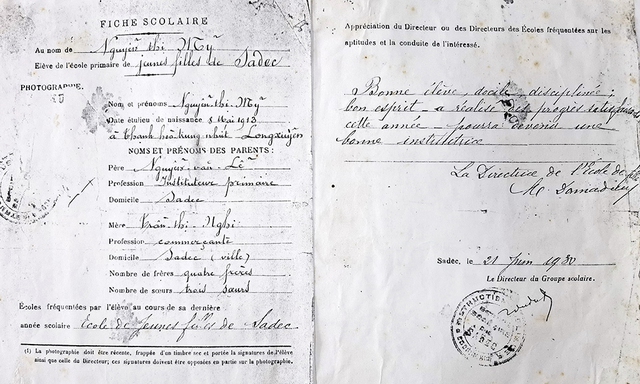 FICHE SCOLAIRE
Au nom de Nguyễn thi Mỹ
Elève de l'école primaire de jeunes filles de Sadec
PHOTOGRAPHIE
Nom et prénoms Nguyễn-thi-Mỹ
Date et lieu de naissance 8 Mai 1913
à Longxuyên
NOMS ET PRÉNOMS DES PARENTS :
Père Nguyễn-văn-Lê
Profession Instituteur primaire
Domicile Sadec
Mère Trân-thi-Nghi
Profession commerçante
Domicile Sadec (ville)
Nombre de frères quatre frères
Nombre de sœurs trois sœurs
Ecoles fréquentées par l'élève au cours de sa dernière
année scolaire Ecole de jeunes filles de Sadec
(1) La photographie doit être récente, frappée d'un timbre sec et portée la signatures de l'élève
ainsi que celle du Directeur; ces signatures doivent être opposées en partie sur la photographie.
Appréciation du Directeur ou des Directeurs des Écoles fréquentées sur les
aptitudes et la conduite de l'intéressé.
Bonne élève, docile, disciplinée;
bon esprit - a réalisé des progrès
cette année - pourra devenir une
bonne institutrice
La Directrice de l'Ecole de
Sadec, le 21 juin 1930
Le Directeur du Groupe scolaire.